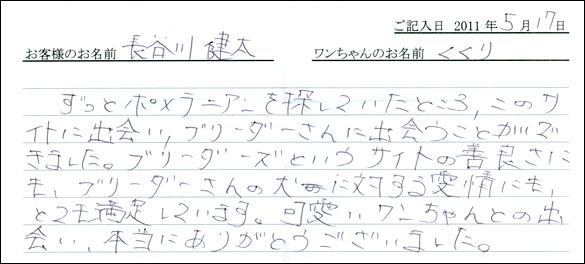 ご記入日 2011年5月17日
お客様のお名前 長谷川 健太 ワンちゃんのお名前 くくり
ずっとポメラニアンを探していたところ、このサ
イトに出会い、ブリーダーさんに出会うことがで
きました。ブリーダーズというサイトの善良さに
も、ブリーダーさんの犬に対する愛情にも、
とても満足しています。可愛いワンちゃんとの出
会い、本当にありがとうございました。